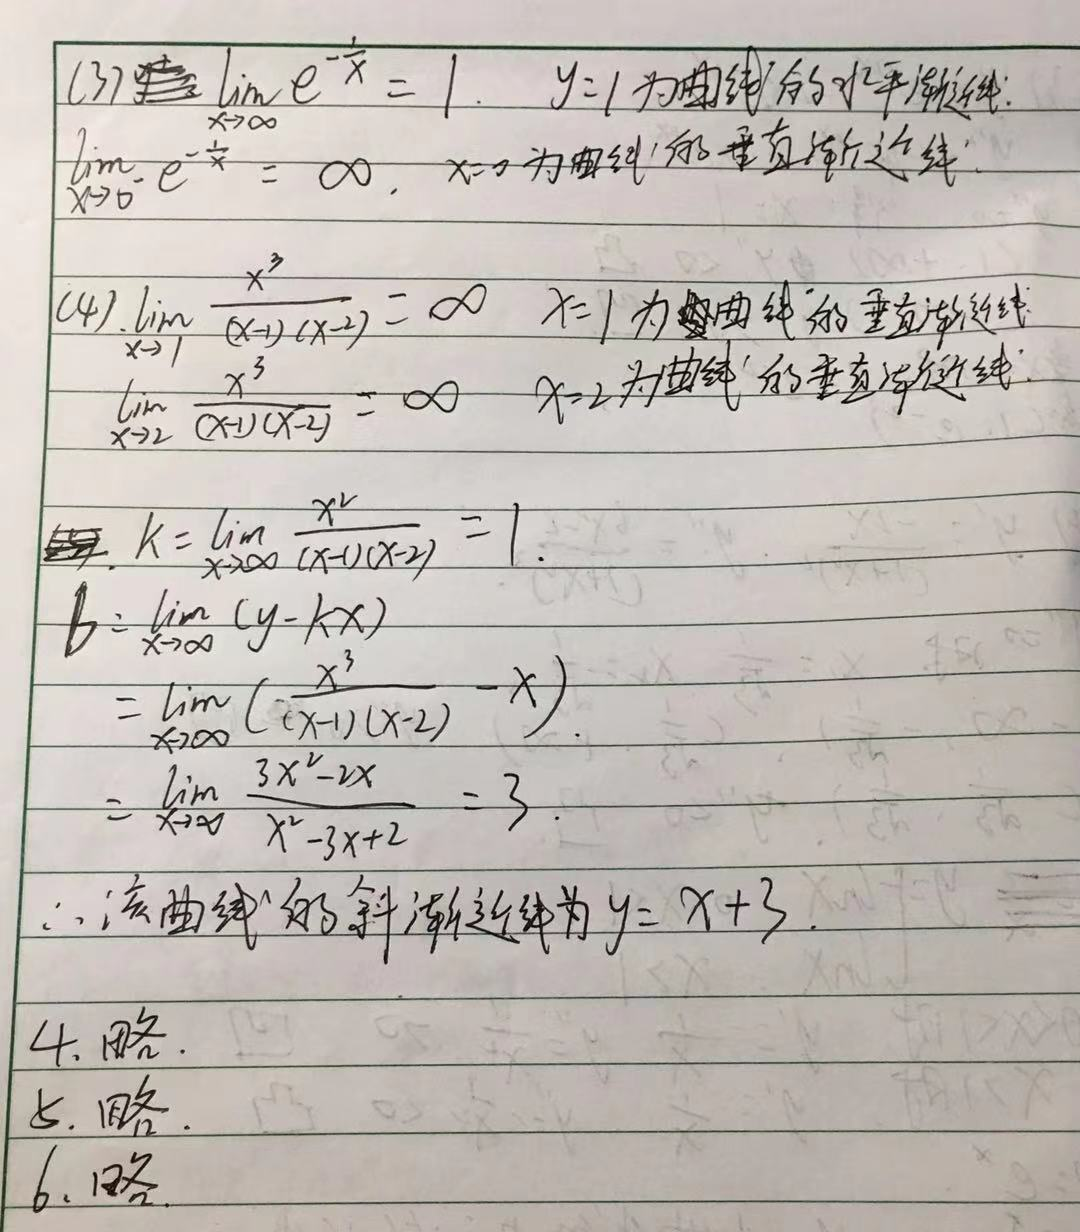 (3) lim_{x→∞} e^{-1/x} = 1. y=1为曲线的水平渐近线.
lim_{x→0^-} e^{-1/x} = ∞. x=0为曲线的垂直渐近线.
(4). lim_{x→1} x³/((x-1)(x-2)) = ∞ x=1为曲线的垂直渐近线.
lim_{x→2} x³/((x-1)(x-2)) = ∞ x=2为曲线的垂直渐近线.
k = lim_{x→∞} x²/((x-1)(x-2)) = 1.
b = lim_{x→∞} (y-kx)
= lim_{x→∞} (x³/((x-1)(x-2)) - x).
= lim_{x→∞} (3x²-2x)/(x²-3x+2) = 3.
∴该曲线的斜渐近线为y=x+3.
4. 略.
5. 略.
6. 略.